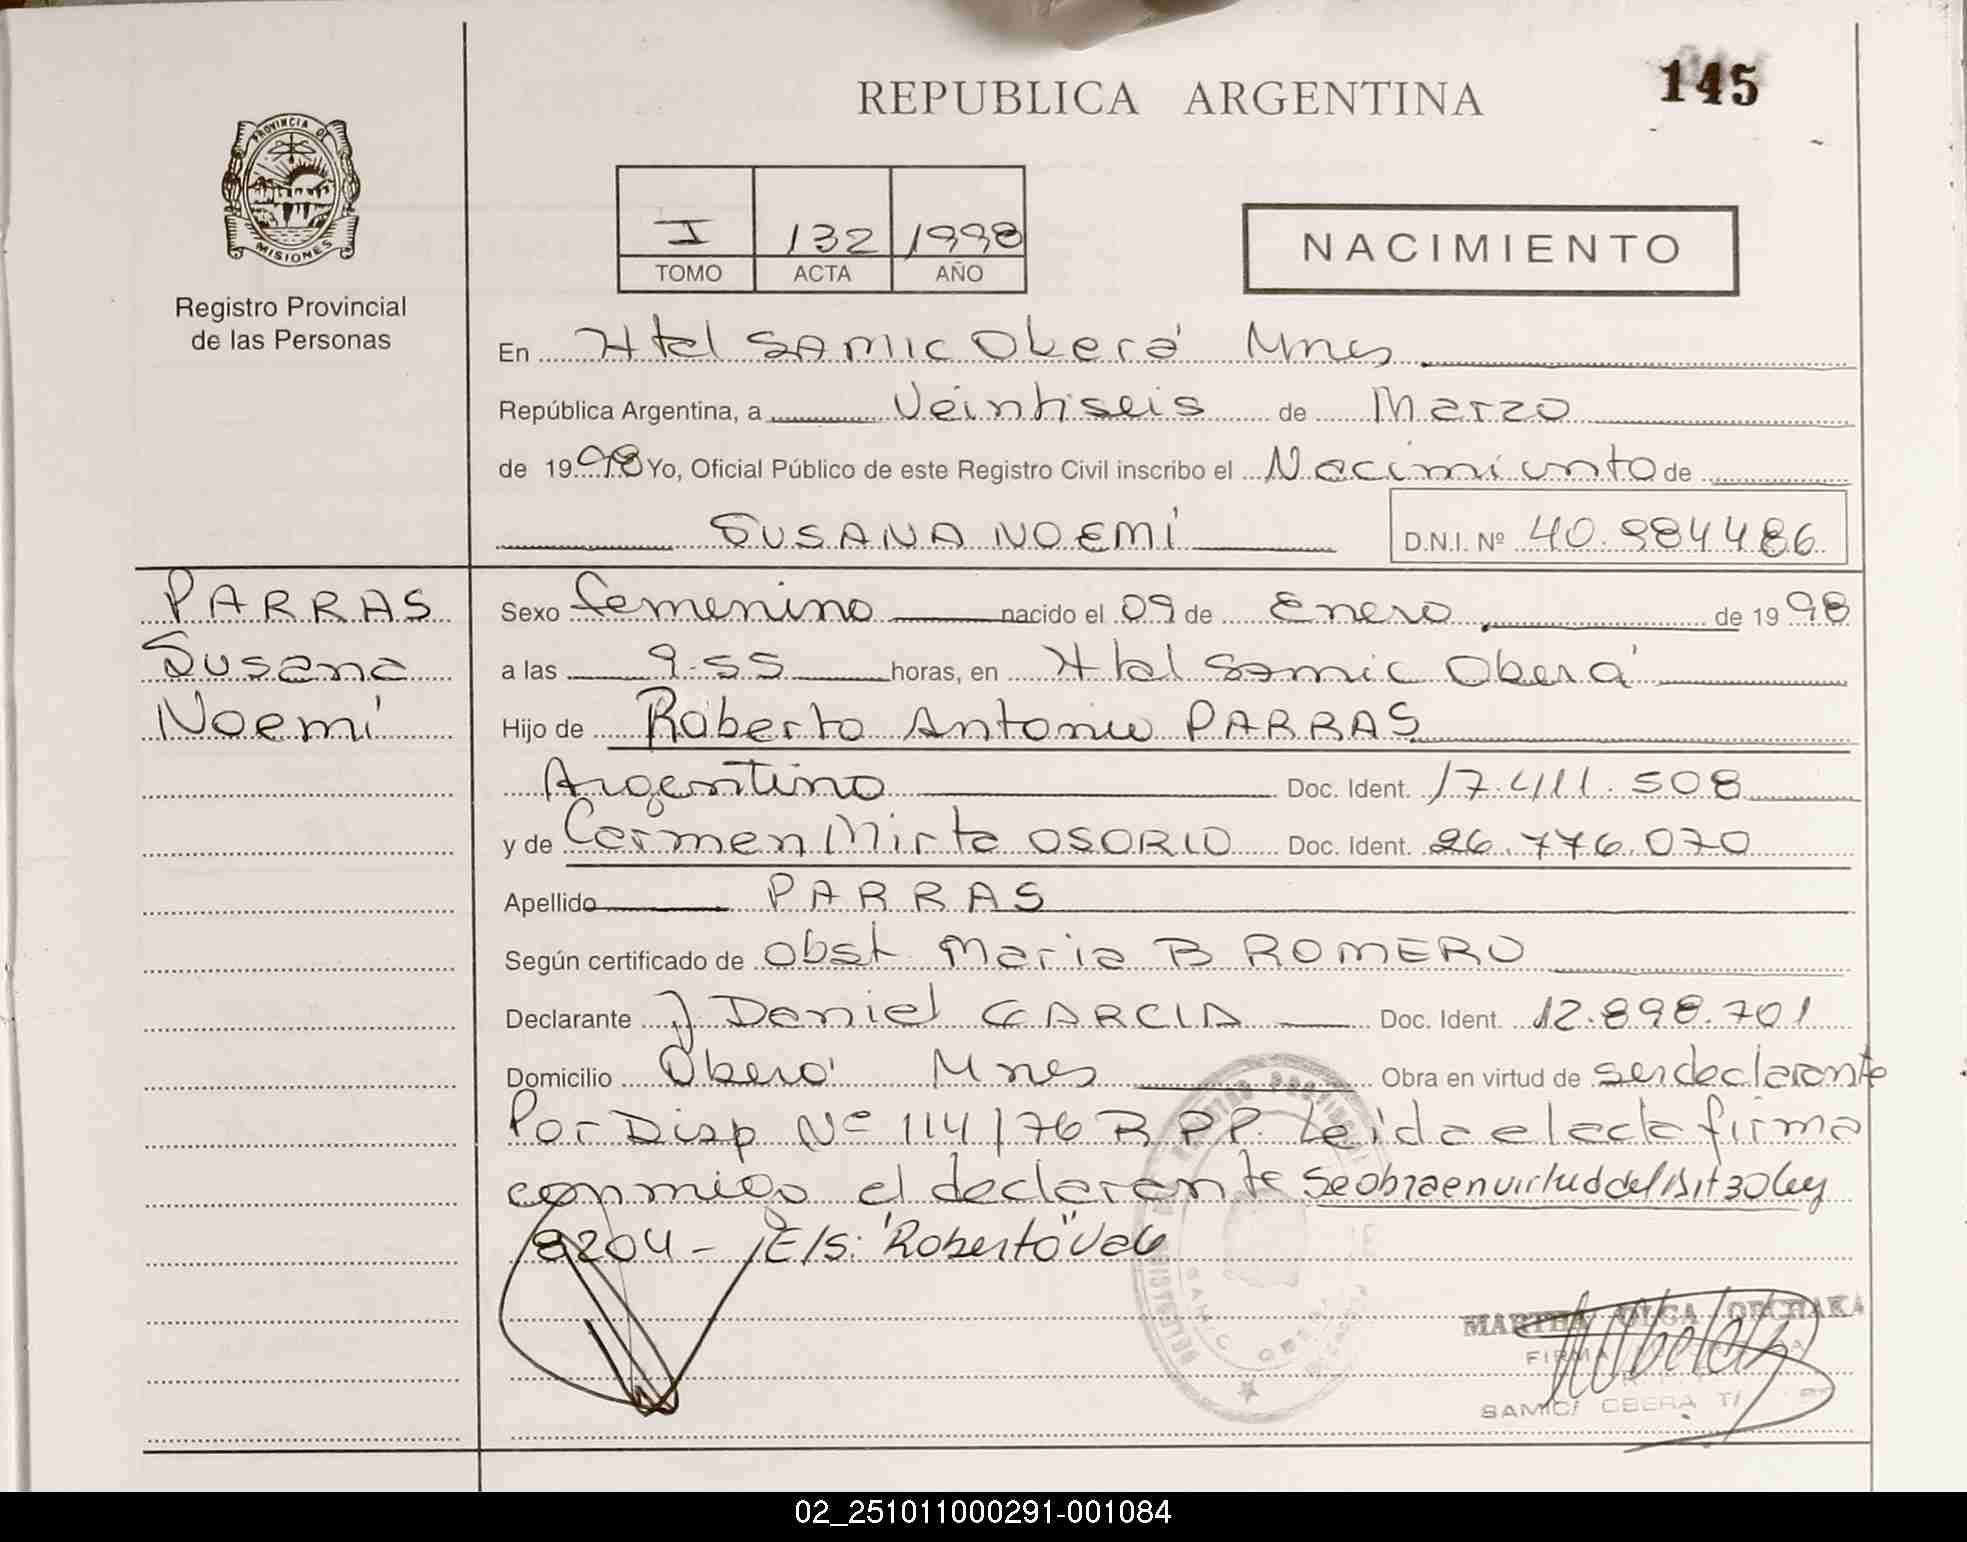 145
REPUBLICA ARGENTINA
PROVINCIA DE
MISIONES
Registro Provincial
de las Personas
I 132 1998
TOMO ACTA AÑO
NACIMIENTO
En Htal SAMIC Oberá Mnes
República Argentina, a Veintiseis de Marzo
de 1998 Yo, Oficial Público de este Registro Civil inscribo el Nacimiento de
SUSANA NOEMÍ D.N.I. Nº 40.984486
PARRAS
Susana
Noemí
Sexo femenino nacido el 09 de Enero de 1998
a las 9.55 horas, en Htal Samic Oberá
Hijo de Roberto Antonio PARRAS
Argentino Doc. Ident. 17.411.508
y de Carmen Mirta OSORIO Doc. Ident. 26.776.070
Apellido PARRAS
Según certificado de Obst Maria B ROMERO
Declarante J Daniel GARCIA Doc. Ident. 12.898.701
Domicilio Oberá Mnes Obra en virtud de ser declarante
Por Disp Nº 114/76 R P P. Leida el acta firma
conmigo el declarante Se obra en virtud del Art 30 Ley
8204 - E/S: "Roberto" Vale
MARTHA OLGA
FIRMA
SAMIC/ OBERA
02_251011000291-001084